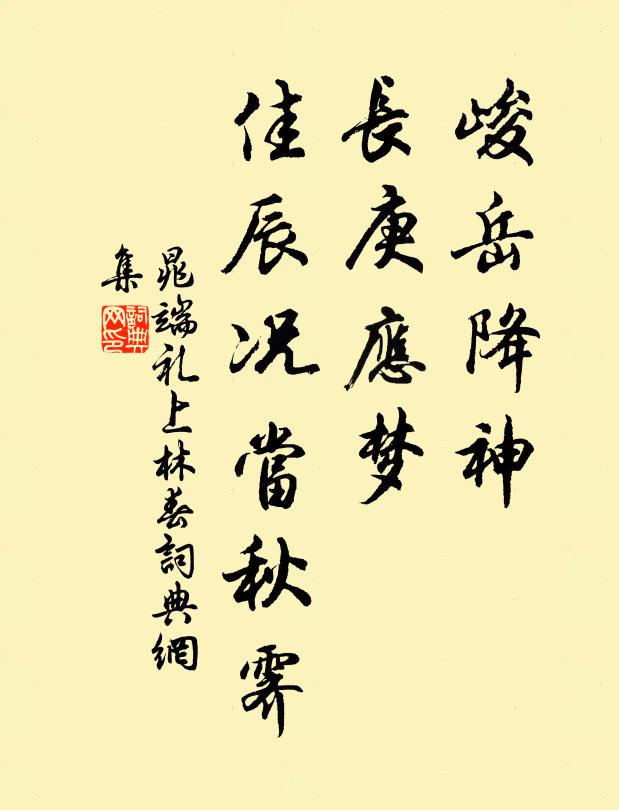 峻岳降神
長庚應梦
佳辰况當秋霁
晁端礼上林春詞典網
集
詞典網印